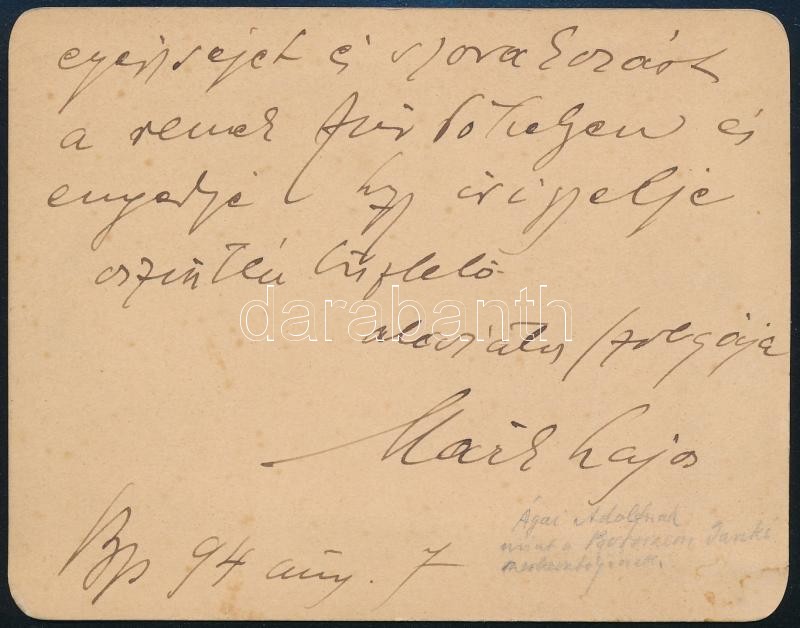 egészséget és szórakozást
a remek fürdőhelyen és
engedje hogy üdvözelje
őszintén tisztelő
alázatos szolgája
Márk Lajos
Bp 94 aug. 7
Ágai Adolfnak
mint a Borsszem Jankó
szerkesztőjének.
darabanth